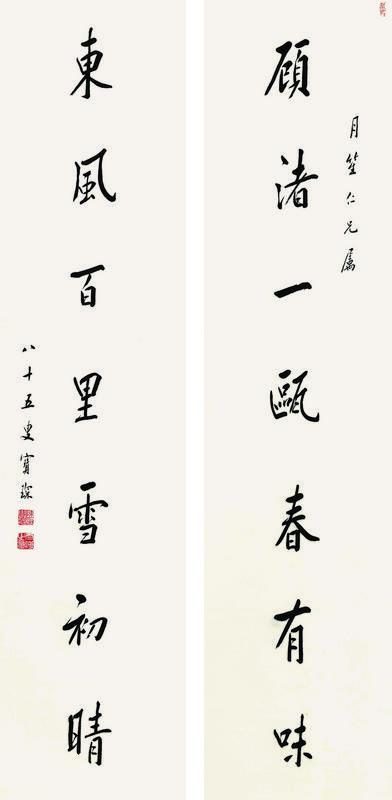 月笙仁兄属
顧渚一甌春有味
東風百里雪初晴
八十五叟寳琛